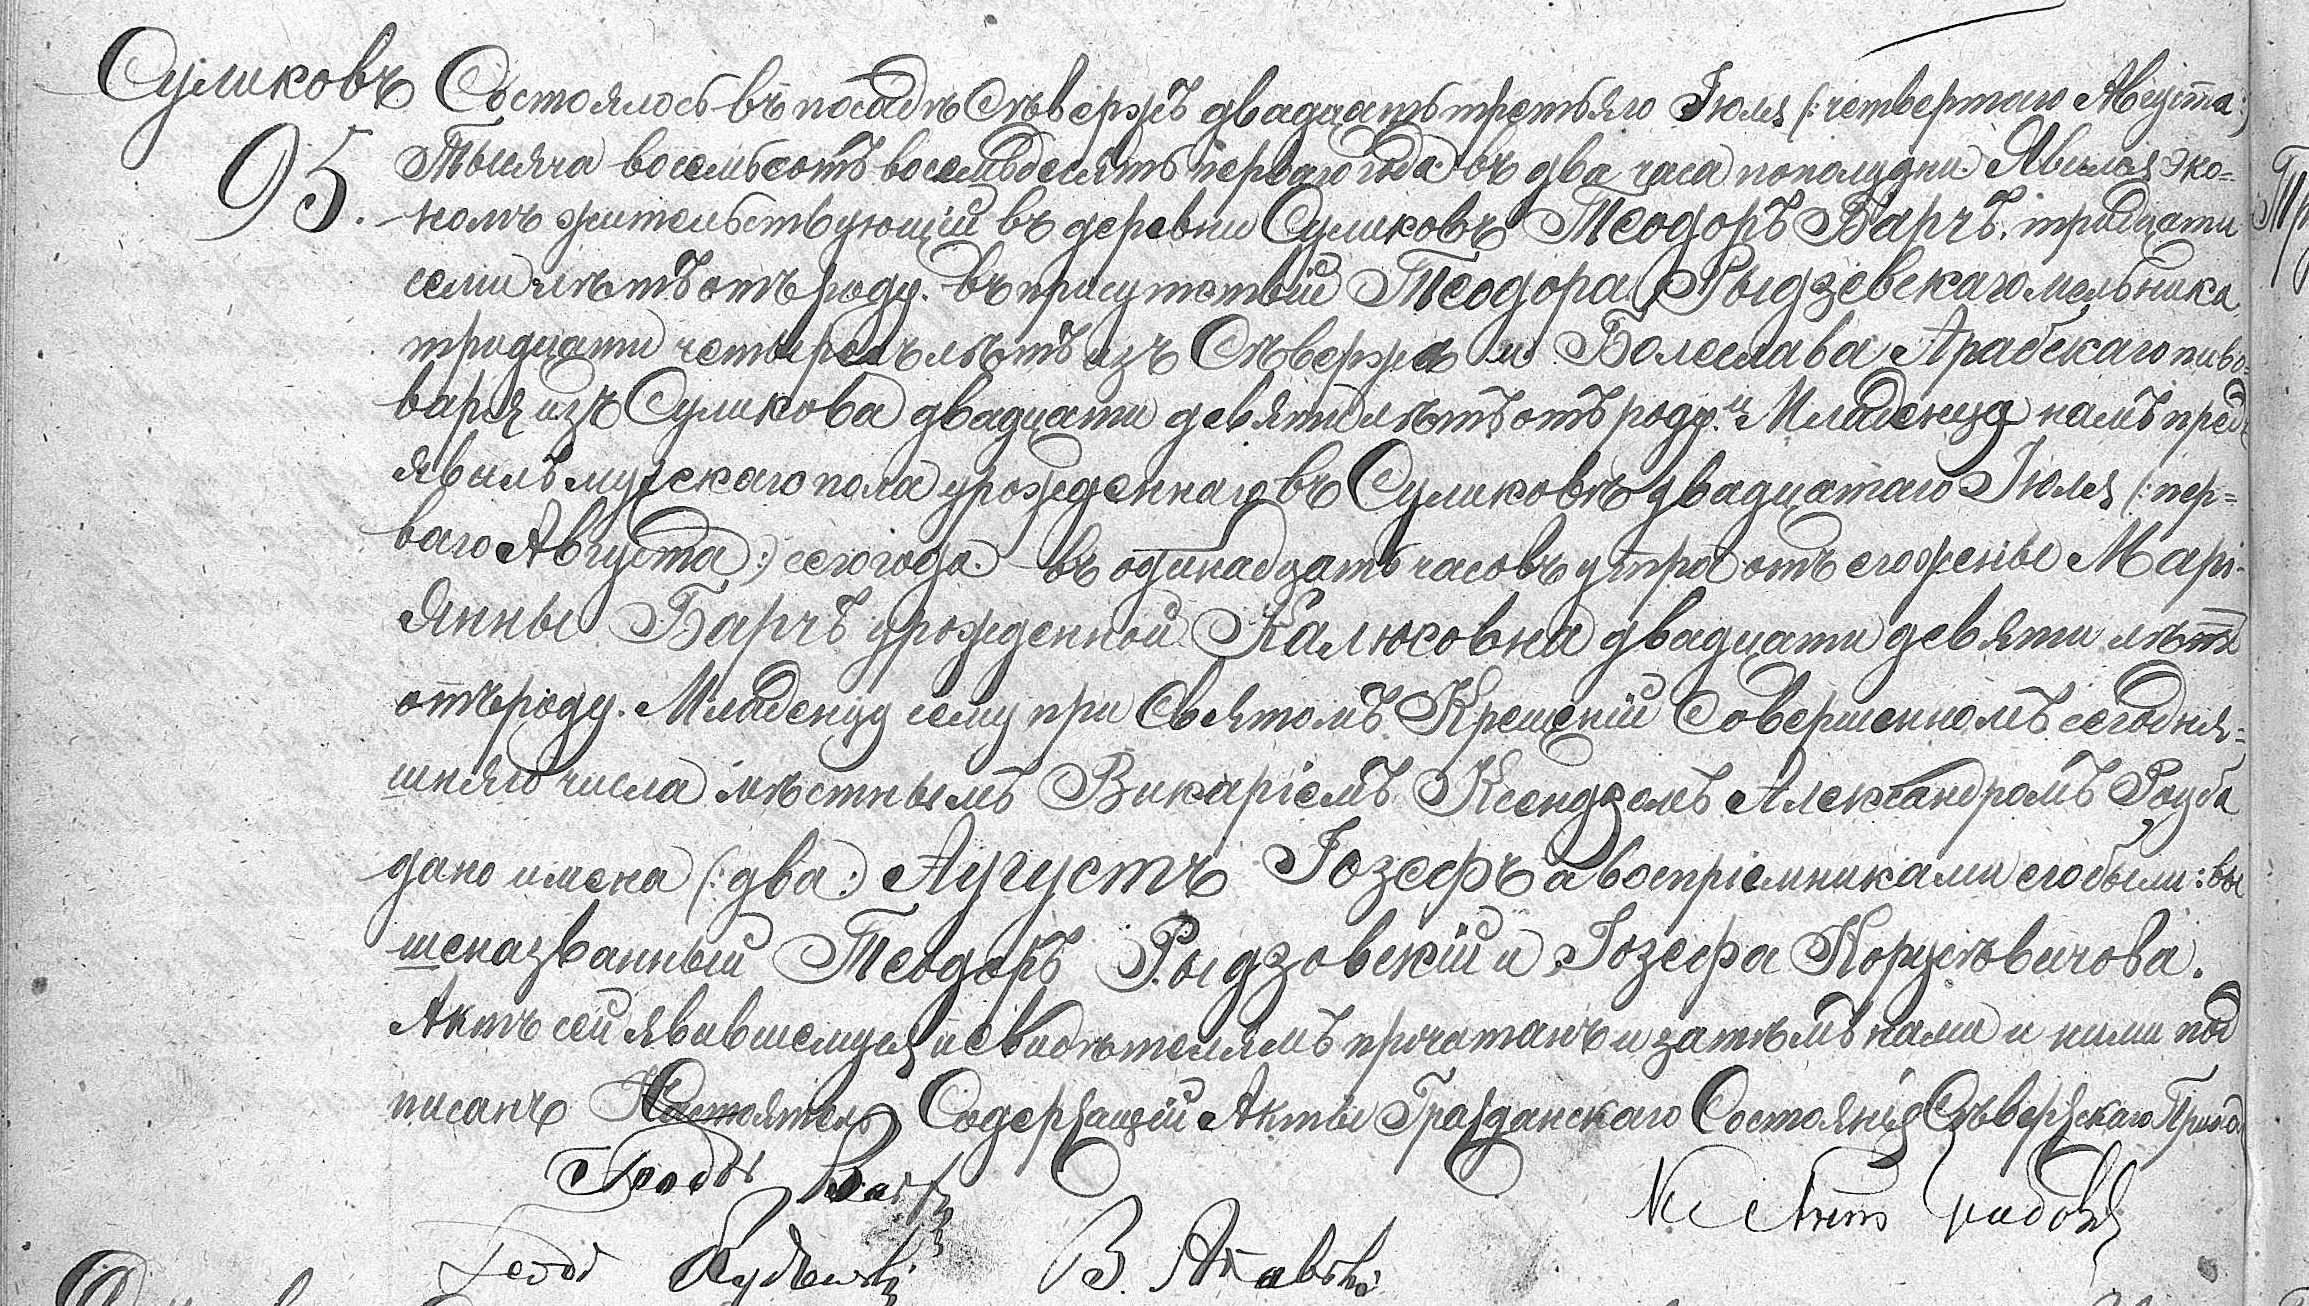 Суликовъ
95.
Состоялось въ посадѣ Сѣвержѣ двадцать третьяго Іюля (:четвертаго Августа:)
Тысяча восемьсотъ восемьдесятъ перваго года въ два часа пополудни. Явился эко=
номъ жительствующій въ деревни Суликовъ Теодоръ Барчъ. тридцати
семи лѣтъ отъ роду. въ присутствіи Теодора Рыдзевскаго мельника
тридцати четырехъ лѣтъ изъ Сѣвержа и Болеслава Арабскаго пиво=
варя изъ Суликова двадцати девяти лѣтъ отъ роду. и Младенца намъ пред
явилъ мужскаго пола урожденнаго въ Суликовѣ двадцатаго Іюля (:пер=
ваго Августа:) сего года. въ одинадцать часовъ утра отъ его жены Марі-
янны Барчъ урожденной Калюсовна двадцати девяти лѣтъ
отъ роду. Младенцу сему при Святомъ Крещеніи Совершенномъ сегодня=
шняго числа мѣстнымъ Викаріемъ Ксендзомъ Александромъ
дано имена (:два:) Аугустъ Іозефъ а воспріемниками его были: вы
шеназванный Теодоръ Рыдзовскій и Іозефа Корусѣвичова.
Актъ сей явившемуся и свидѣтелямъ прочитанъ и затѣмъ нами и ними под
писанъ Настоятель Содержащій Акты Гражданскаго Состоянія Сѣвержскаго Прихода